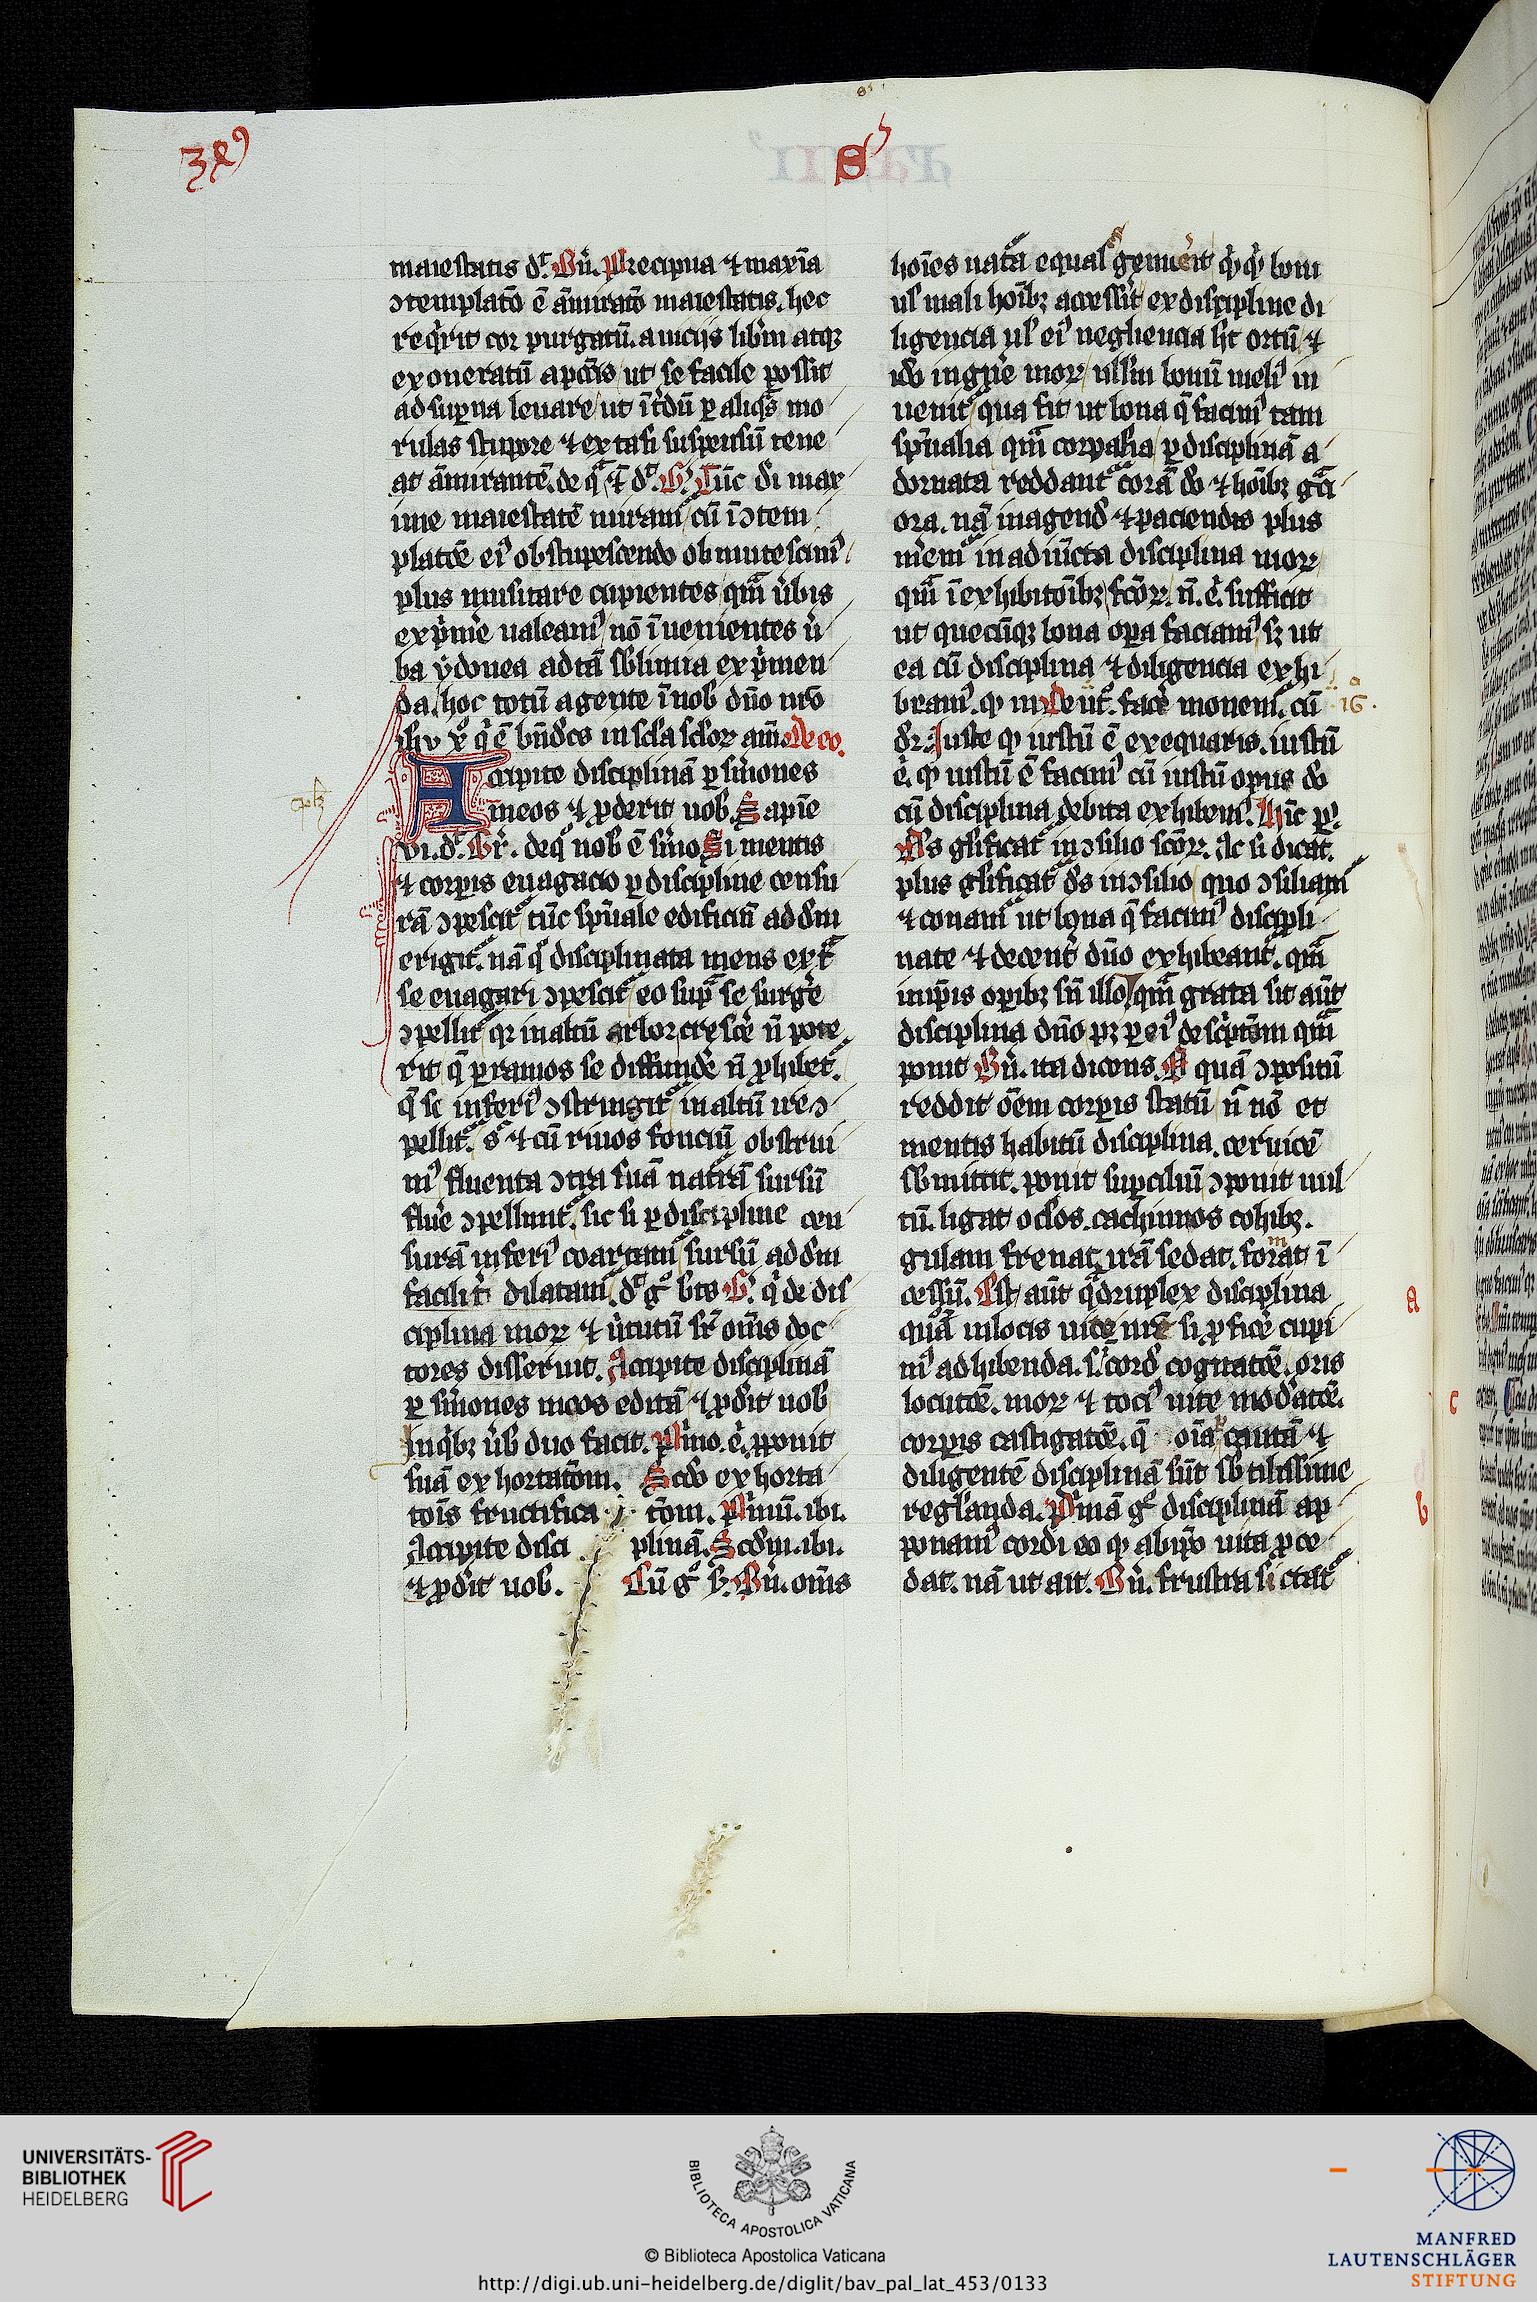 maiestatis dr̄. Bn̄. Precipua ⁊ maxīa
ꝯtemplatō ē āmiratō maiestatis. hec
reqͥrit cor purgatū. a uicijs libͤm atqꝫ
exoneratū a pctīs ut se facile possit
ad supͥna leuare ut īt̄dū ꝑ aliqͣs mo
rulas stupore ⁊ extasi suspensū tene
at āmirantē. de qͣ ī dr̄. Gͥ. Tūc di max
ime maiestatē miramͬ cū ī ꝯtem
platōe eiꝰ obstupescendo obmutescimꝰ
plus mussitare cupientes qͣm ūbis
expͥme ualeamꝰ nō īuenientes ū
ba ydonea ad tā sblimia expͥmen
da. hoc totū agente ī nob dn̄o nrō
ihu xͦ qͥ ē bn̄dcs in scl̄a scl̄oꝝ am̄. De eo.
Accipite disciplinā ꝑ sr̄mones
meos ⁊ ꝓderit uob. Sapīe
vi. dr̄. Gr̄. de qͦ nob ē sr̄mo Si mentis
⁊ corꝑis euagacio ꝑ discipline censu
rā ꝯpescitͬ tūc spūale edificiū ad dm̄
erigitͬ. nā qͦ disciplinata mens extͣ
se euagari ꝯpescitͬ eo supͣ se surgͤe
ꝯpellitͬ qꝛ in altū arbor crescͤe n̄ pote
rit q̄ ꝑ ramos se diffundͤe n̄ ꝓhibetͬ.
q̄ sc inferiꝰ ꝯstringitͬ in altū ire ꝯ
pellitͬ. sͨ ⁊ cū riuos fonciū obstrui
mꝰ fluenta ꝯtra suā natͬā sursū
fluͤe ꝯpellunt. sic si ꝑ discipline cen
surā inferiꝰ coartamͬ sursū ad dm̄
facilitͬ dilatamͬ. dr̄ gͦ bts Gͥ. qͥ de dis
ciplina moꝝ ⁊ uͥtutū sr̄ om̄s doc
tores disseruit. Accipite disciplinā
ꝑ sr̄mones meos editā ⁊ ꝓdͤit uob
In qͥbꝫ ūb duo facit. Pͥmo. ē. ꝓponit
suā exhortatōm. Scdo exhorta
tōis fructifica tōm. Pͥmū. ibi.
Accipite disci plinā. Scdm. ibi.
⁊ ꝓdͤit uob. Cū gͦ ẜ. Bn̄. om̄s
hoīes natͬa equalͬ genuͤit qͥcqͥd boni
ul mali hoībꝫ accessͤit ex discipline di
ligencia ul eiꝰ negliencia hͭ ortū ⁊
ido in gn̄e moꝝ nllm̄ bonū meliꝰ in
uenitͬ qua fit ut bona q̄ facimꝰ tam
spūalia qͣm corꝑalia ꝑ disciplinā a
dornata reddantͬ corā do ⁊ hoībꝫ gͣci
ora. nā in agend ⁊ paciendis plus
mͤemͬ in adiūcta disciplina moꝝ
qͣm ī exhibitōibꝫ fcōꝝ. n̄. ē. sufficit
ut quecūqꝫ bona oꝑa faciamꝰ sꝫ ut
ea cū disciplina ⁊ diligencia exhi
beamꝰ. qd in Deut̄. facͤe monemͬ. cū
16.
dr̄. Iuste qd iustū ē exequaris. iustū
ē. qd iustū ē facimꝰ cū iustū opus do
cū disciplina debita exhibemꝰ. Hīc pͣ.
Ds gl̄ificatͬ in ꝯsilio scōꝝ. Ac si dicat.
plus gl̄ificatͬ ds in ꝯsilio quo ꝯsiliamͬ
⁊ conamͬ ut bona q̄ facimꝰ discipli
nate ⁊ decent̄ dn̄o exhibeant̄. qͣm
in ip̄is oꝑibꝫ sn̄ illo qͣm grata sit aūt
disciplina dn̄o pꝫ ꝑ eiꝰ descͥptōm qͣm
ponit Bn̄. ita dicens. A quā ꝯpositū
reddit ōem corꝑis statū n̄ nō et
mentis habitū disciplina. ceruicē
sbmittit. ponit suꝑciliū ꝯponit uul
tū. ligat oclos. cachinnos cohibꝫ.
gulam frenat. irā sedat. format ī
cessū. Est aūt qͣdruplex disciplina
quā in locis uite nr̄e si ꝓficͤe cupi
mꝰ adhibenda. s. cord cogitatōe. oris
locutōe. moꝝ ⁊ tociꝰ uite modͤatōe.
corꝑis castigatōe. q̄ oīa cautā ⁊
diligentē disciplinā sūt sbtilissime
regl̄anda. Pͥmā gͦ disciplinā ap
ponamꝰ cordi eo qd ab ip̄o uita ꝓce
dat. nā ut ait. Bn̄. frustra sectatͬ
a
c
b
UNIVERSITÄTS-
BIBLIOTHEK
HEIDELBERG
BIBLIOTECA APOSTOLICA VATICANA
© Biblioteca Apostolica Vaticana
http://digi.ub.uni-heidelberg.de/diglit/bav_pal_lat_453/0133
MANFRED
LAUTENSCHLÄGER
STIFTUNG